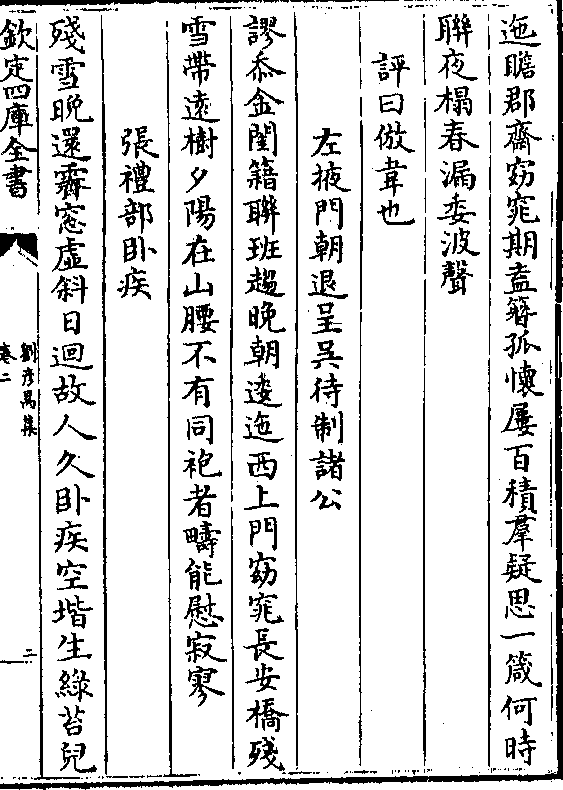 迤瞻郡齋窈窕期盍簪孤懷屢百積羣疑思一箴何時
聯夜榻春漏委波聲
評曰倣韋也
左掖門朝退呈吳待制諸公
謬忝金閨籍聯班趨晚朝逶迤西上門窈窕長安橋殘
雪帶遠樹夕陽在山腰不有同袍者疇能慰寂寥
張禮部卧疾
殘雪晚還霽窓虛斜日迴故人久卧疾空堦生綠苔兒
欽定四庫全書
劉彦昺集
卷二
二